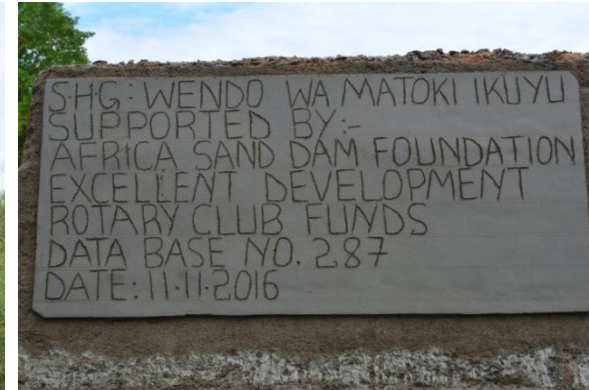 S·H·G: WENDO WA MATOKI IKUYU
SUPPORTED BY:-
AFRICA SAND DAM FOUNDATION
EXCELLENT DEVELOPMENT
ROTARY CLUB FUNDS
DATA BASE NO. 287
DATE: 11·11·2016